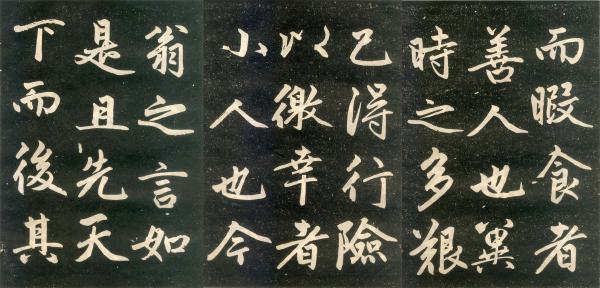 而暇食者
善人也冀
時之多艱
己得行險
以徼幸者
小人也今
翁之言如
是且先天
下而後其